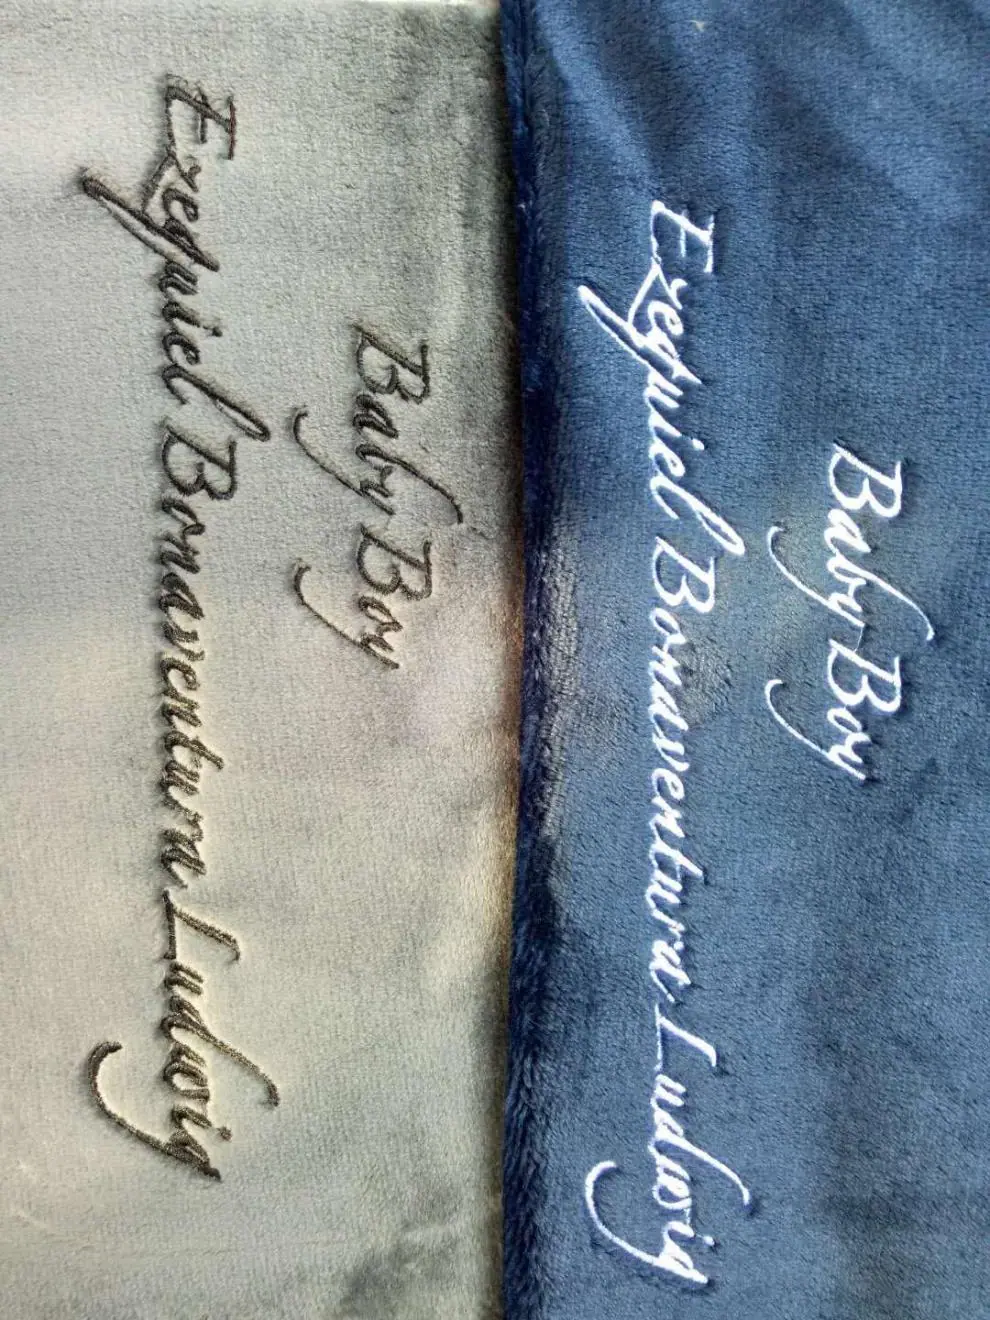 Baby Boy
Ezequiel Bonaventura Ludwig
Baby Boy
Ezequiel Bonaventura Ludwig